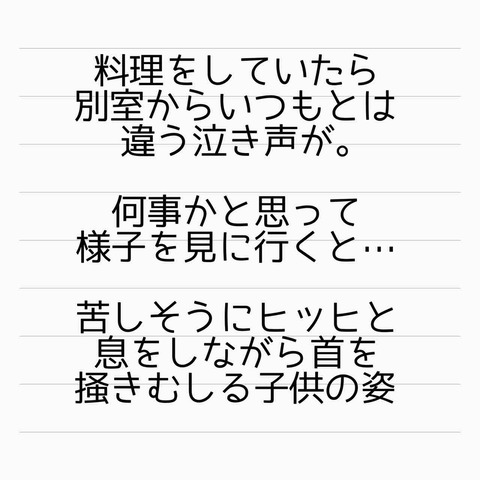 料理をしていたら
別室からいつもとは
違う泣き声が。
何事かと思って
様子を見に行くと…
苦しそうにヒッヒと
息をしながら首を
掻きむしる子供の姿